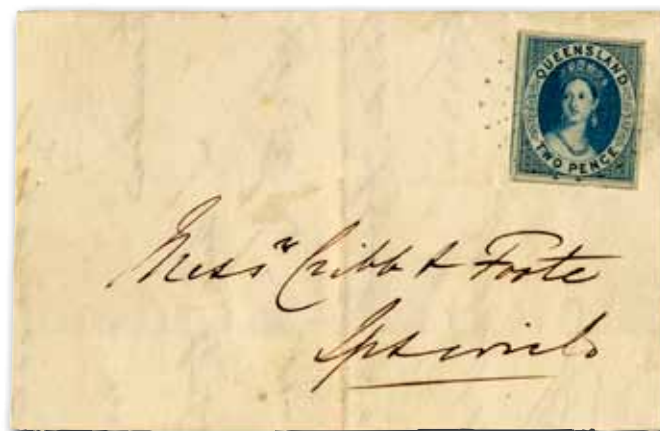 QUEENSLAND
TWO PENCE
Messrs Cribb & Foote
Ipswich